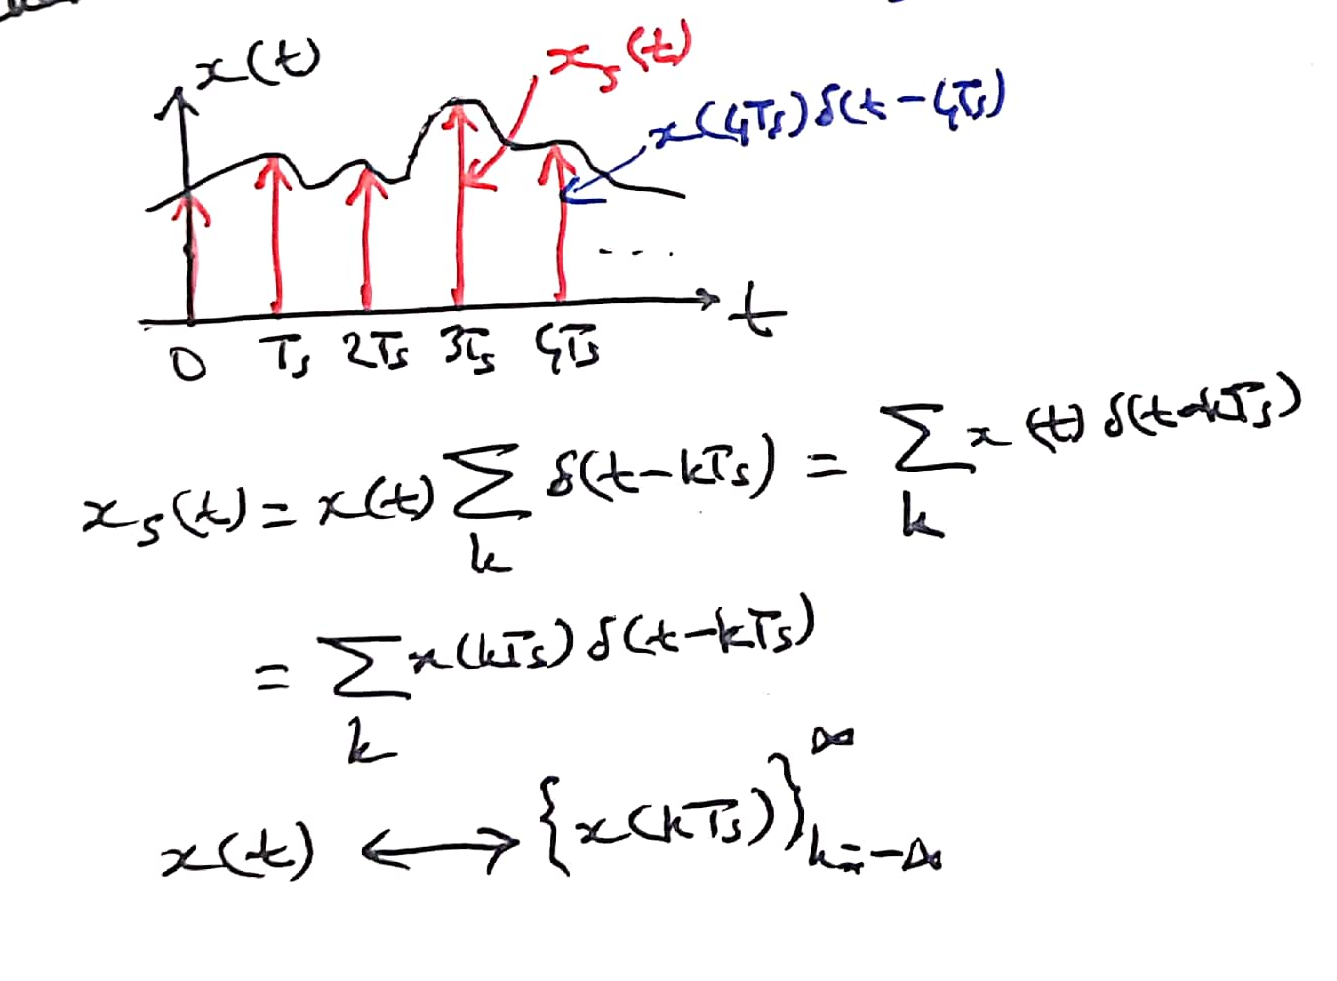 x(t)
x_s(t)
x(4T_s) δ(t - 4T_s)
....
t
0 T_s 2T_s 3T_s 4T_s
x_s(t) = x(t) Σ_k δ(t - kT_s) = Σ_k x(t) δ(t - kT_s)
= Σ_k x(kT_s) δ(t - kT_s)
x(t) ⟷ {x(kT_s)}_{k=-∞}^{∞}